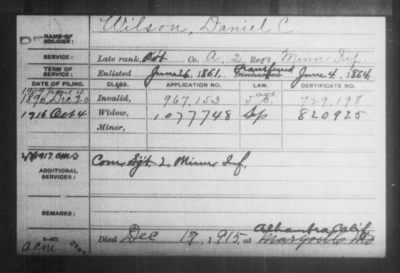 Wilson, Daniel C
NAME OF SOLDIER:
SERVICE: Late rank, Pvt Co. A, 2 Reg't Minn Inf.
TERM OF SERVICE: Enlisted June 26, 1861. Transferred Discharged June 4, 1864
DATE OF FILING. CLASS. APPLICATION NO. LAW. CERTIFICATE NO.
1890 Dec 20 Invalid, 967,153 729,198
1916 Oct 4 Widow, 1077748 820925
Minor,
ADDITIONAL SERVICES: Com Sgt 2 Minn Inf.
REMARKS:
Alhambra Calif
Died Dec 17, 1915, at